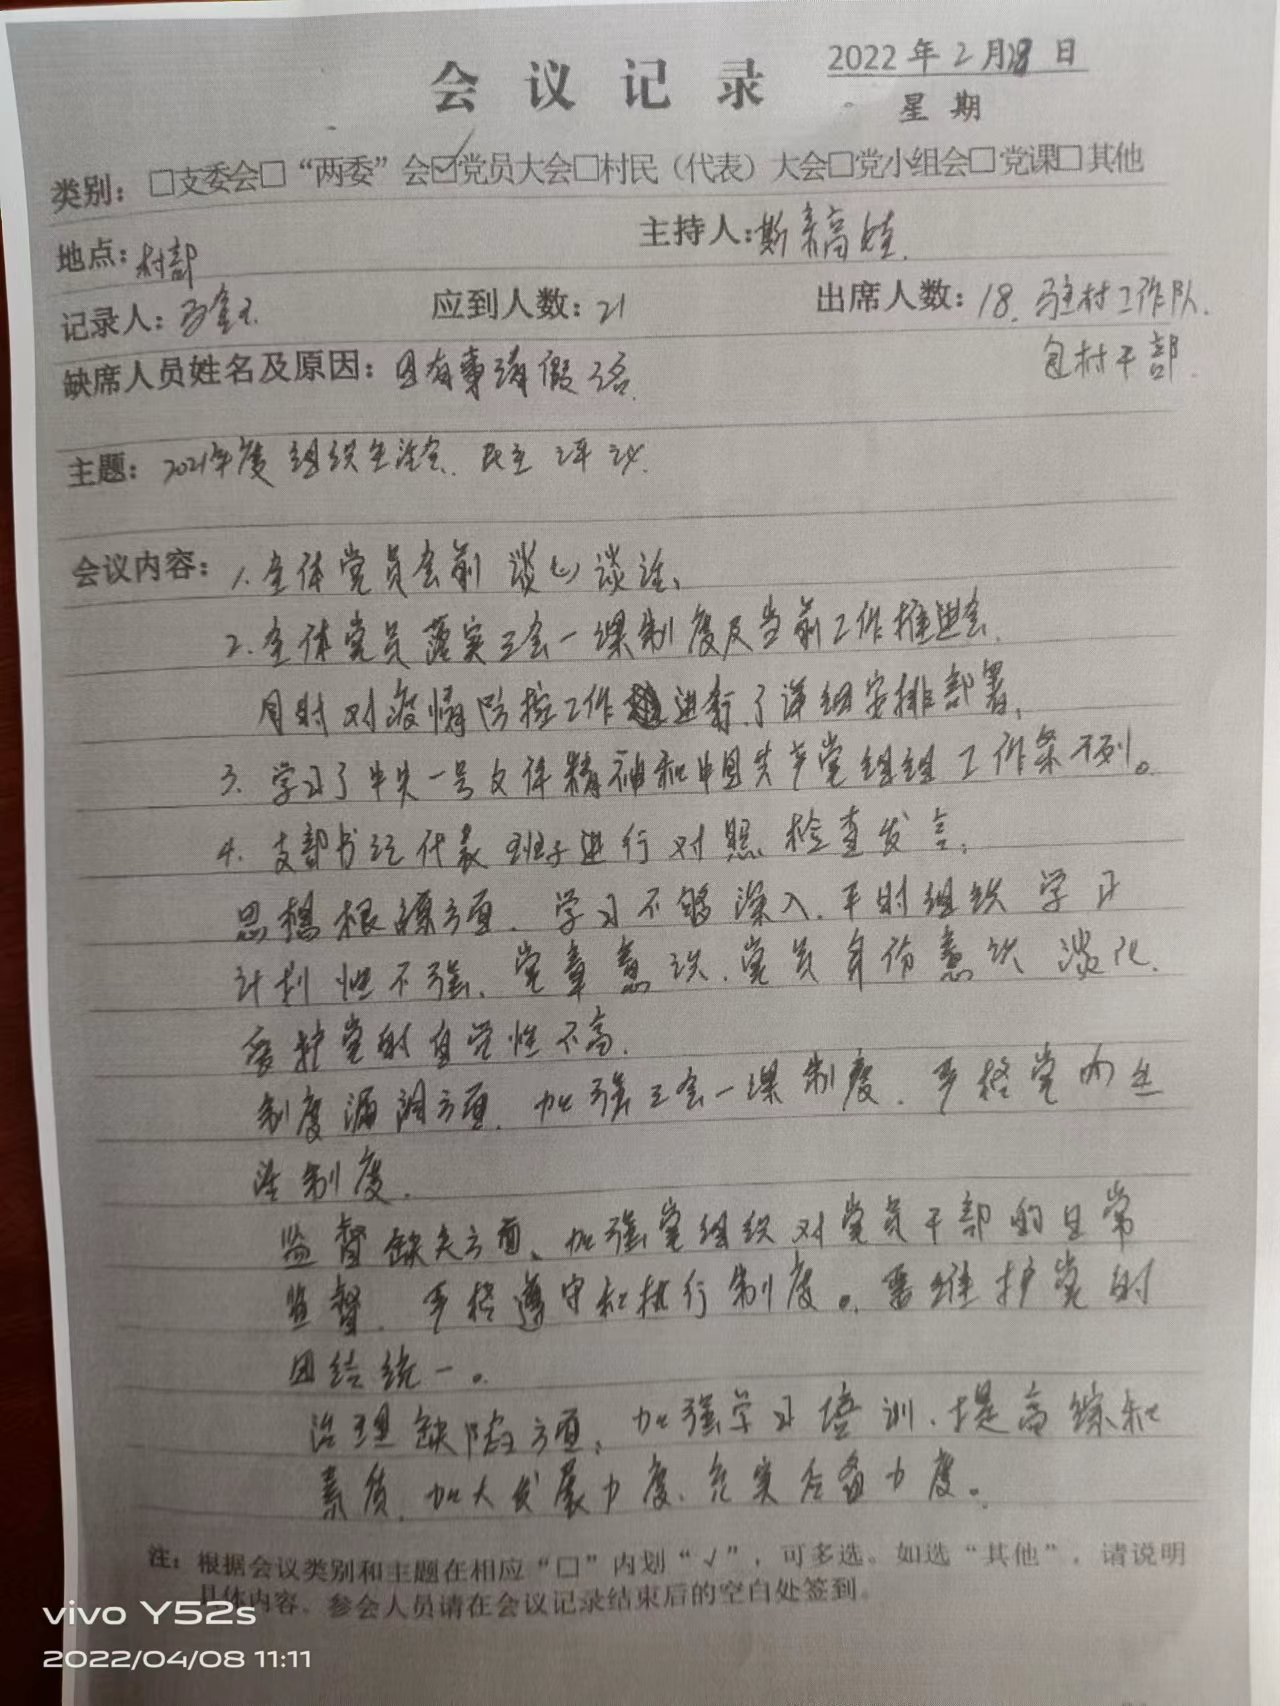 会议记录
2022年2月18日
星期
类别：□支委会□“两委”会☑党员大会□村民（代表）大会□党小组会□党课□其他
地点：村部
主持人：斯素高娃
记录人：
应到人数：21
出席人数：18. 驻村工作队.
包村干部.
缺席人员姓名及原因：因有事请假3名.
主题：2021年度组织生活会. 民主评议.
会议内容：1. 全体党员会前谈心谈话、
2. 全体党员落实三会一课制度及当前工作推进会.
同时对疫情防控工作进行了详细安排部署、
3. 学习了中央一号文件精神和中国共产党组织工作条例。
4. 支部书记代表班子进行对照检查发言、
思想根源方面. 学习不够深入. 平时组织学习
计划性不强. 党章意识. 党员身份意识淡化.
爱护党的自觉性不高.
制度漏洞方面. 加强三会一课制度. 严格党内生
活制度.
监督缺失方面、加强党组织对党员干部的日常
监督. 严格遵守和执行制度。要维护党的
团结统一。
治理缺陷方面、加强学习培训、提高综和
素质. 加大发展力度、充实后备力度。
注：根据会议类别和主题在相应“□”内划“√”，可多选。如选“其他”，请说明
具体内容。参会人员请在会议记录结束后的空白处签到。
vivo Y52s
2022/04/08 11:11